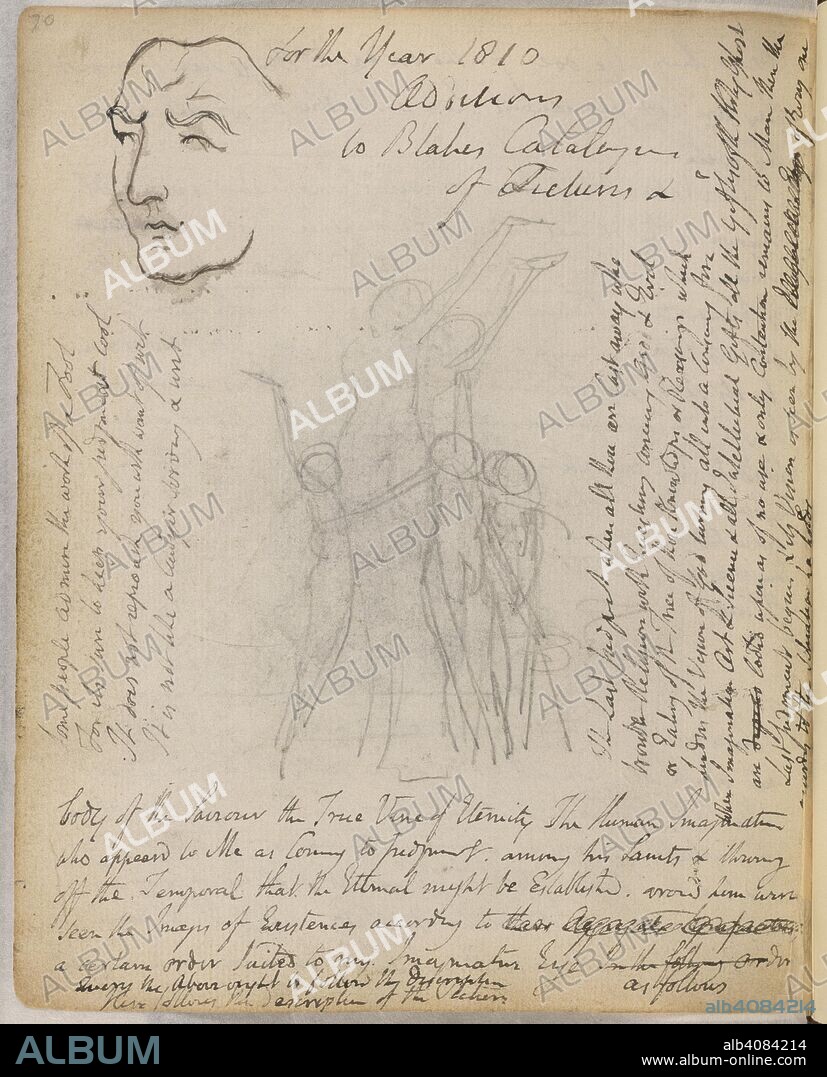 70
For the Year 1810
Additions
to Blakes Catalogue
of Pictures &
The Last Judgment when all those are Cast away who
trouble Religion with Questions concerning Good & Evil
or Eating of the Tree of those Knowledges or Reasonings which
hinder the Vision of God turning all into a Consuming fire
When Imagination Art & Science & all Intellectual Gifts all the Gifts of the Holy Ghost
are lookd upon as of no use & only Contention remains to Man then the
Last Judgment begins & its Vision is seen by the Eye of Every one
according to the situation he holds
Some people admire the work of a Fool
For its sure to keep your judgment cool
It does not reproach you with want of wit
It is not like a lawyer serving a writ
body of the Saviour the True Vine of Eternity The Human Imagination
who appeard to Me as Coming to Judgment. among his Saints & throwing
off the Temporal that the Eternal might be Establishd. around him were
seen the Images of Existences according to
a certain order Suited to my Imaginative Eye In the following order
as follows
Query the Above ought to follow the description
Here follows the description of the Picture
ALBUM
alb4084214
ALBUM
alb4084214
www.album-online.com